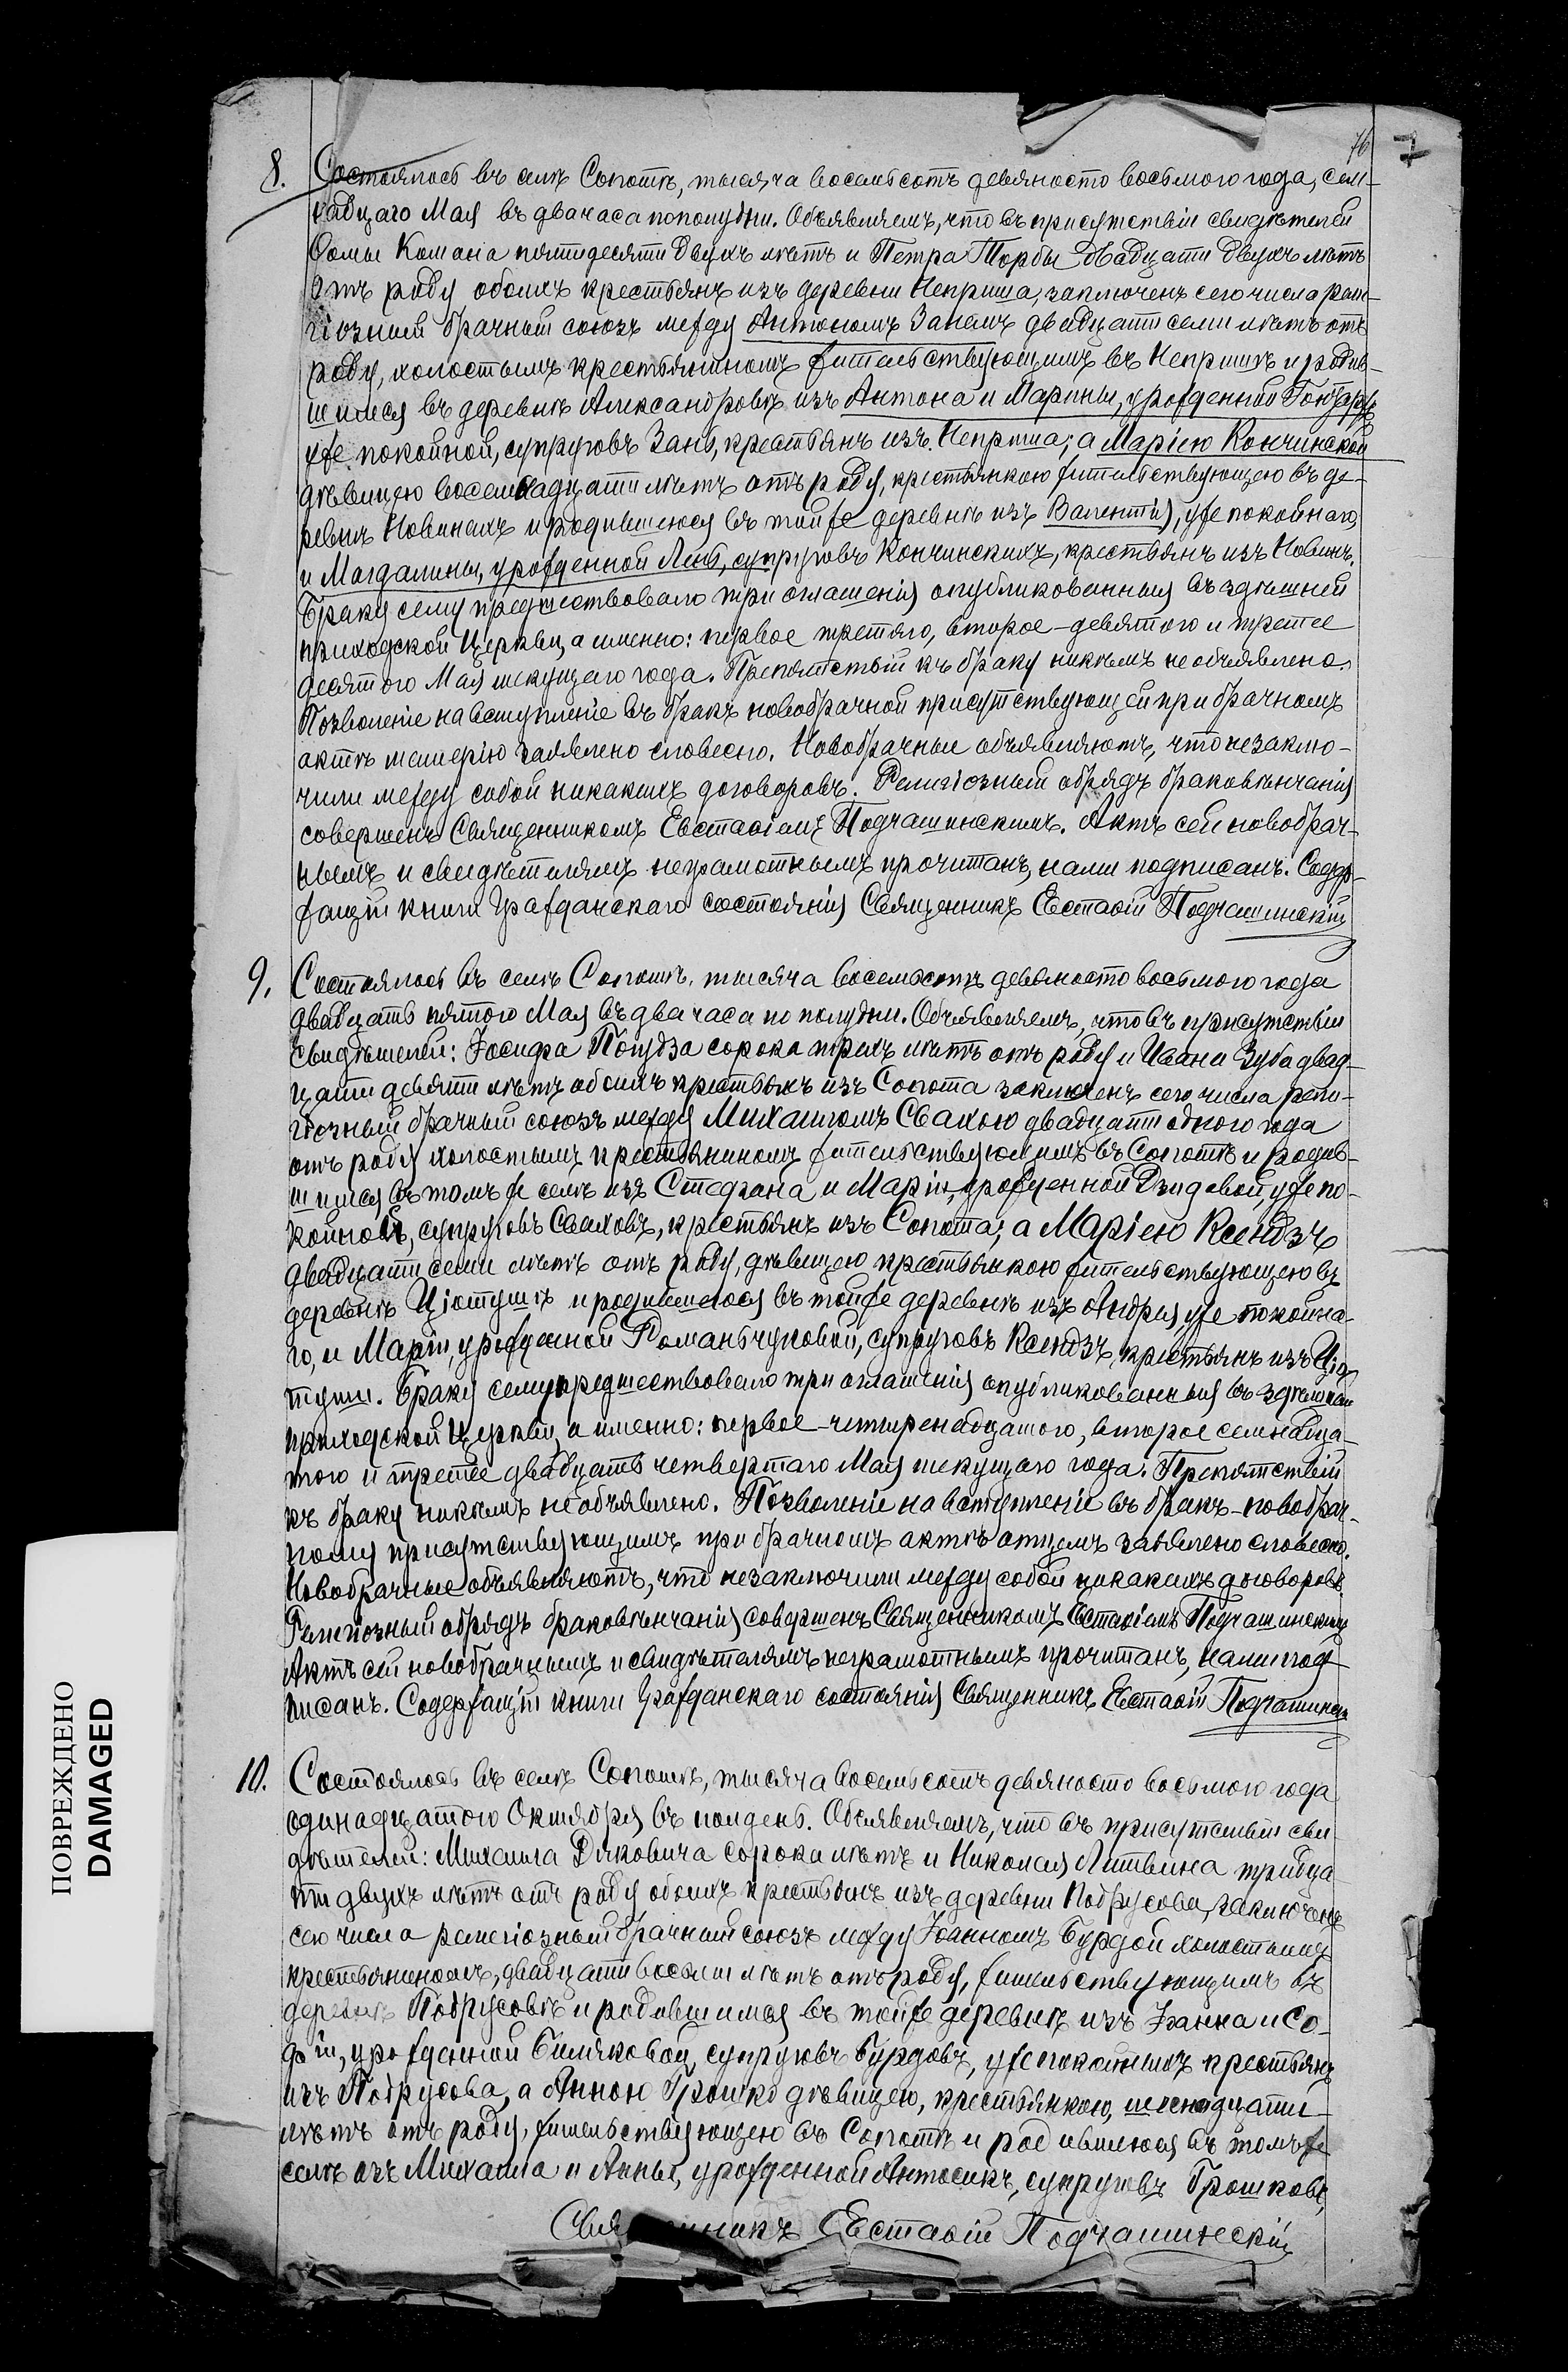 76
7
8. Состоялось въ селѣ Сопотѣ, тысяча восемьсотъ девяносто восьмого года, сем-
надцаго Мая въ два часа пополудни. Объявляемъ, что въ присутствіи свидѣтелей
Ѳомы Комана пятидесяти двухъ лѣтъ и Петра Торбы двадцати двухъ лѣтъ
отъ роду обоихъ крестьянъ изъ деревни Неприша, заключенъ сего числа рели-
гіозный брачный союзъ между Антономъ Занемъ двадцати семи лѣтъ отъ
роду, холостымъ крестьяниномъ жительствующимъ въ Непришѣ и родив-
шимся въ деревнѣ Александровкѣ изъ Антона и Марины, урожденной
уже покойной, супруговъ Зань, крестьянъ изъ Неприша; а Маріею Кончинской
дѣвицею восемнадцати лѣтъ отъ роду, крестьянкою жительствующею въ де-
ревнѣ Новинахъ и родившеюся въ тойже деревнѣ изъ Валентія, уже покойнаго,
и Магдалины, урожденной Лень, супруговъ Кончинскихъ, крестьянъ изъ Новинъ.
Браку сему предшествовало три оглашенія опубликованныя въ здѣшней
приходской Церкви, а именно: первое третяго, второе - девятого и третее
десятого Мая текущего года. Препятствій къ браку никѣмъ необъявлено.
Позволеніе на вступленіе въ бракъ новобрачной присутствующей при брачномъ
актѣ матерію заявлено словесно. Новобрачные объявляютъ, что незаклю-
чили между собой никакихъ договоровъ. Религіозный обрядъ браковѣнчанія
совершенъ Священникомъ Евстаѳіемъ Подчашинскимъ. Актъ сей новобрач-
нымъ и свидѣтелямъ неграмотнымъ прочитанъ, нами подписанъ. Содер-
жащій книги Гражданскаго состоянія Священникъ Евстаѳій Подчашинскій
9. Состоялось въ селѣ Сопотѣ, тысяча восемьсотъ девяносто восьмого года
двадцать пятого Мая въ два часа по полудни. Объявляемъ, что въ присутствіи
свидѣтелей: Іосифа Погудза сорока трехъ лѣтъ отъ роду и Ивана Зуба двад-
цати девяти лѣтъ обоихъ крестьянъ изъ Сопота заключенъ сего числа рели-
гіозный брачный союзъ между Михаиломъ Свахою двадцати одного года
отъ роду холостымъ крестьяниномъ жительствующимъ въ Сопотѣ и родив-
шимся въ томъ же селѣ изъ Стефана и Маріи, урожденной Дзидовой, уже по-
койной, супруговъ Сваховъ, крестьянъ изъ Сопота; а Маріею Ксендзъ
двадцати семи лѣтъ отъ роду, дѣвицею крестьянкою жительствующею въ
деревнѣ Цютушѣ и родившеюся въ тойже деревнѣ изъ Андрея, уже покойна-
го, и Маріи, урожденной Романьчуковой, супруговъ Ксендзъ, крестьянъ изъ Цю-
туши. Браку сему предшествовало три оглашенія опубликованныя въ здѣшней
приходской Церкви, а именно: первое - четыренадцатого, второе семнадца-
того и третее двадцать четвертаго Мая текущаго года. Препятствій
къ браку никѣмъ необъявлено. Позволеніе на вступленіе въ бракъ - новобрач-
ному присутствующимъ при брачномъ актѣ отцемъ заявлено словесно.
Новобрачные объявляютъ, что незаключили между собой никакихъ договоровъ.
Религіозный обрядъ браковѣнчанія совершенъ Священникомъ Евстаѳіемъ Подчашинскимъ
Актъ сей новобрачнымъ и свидѣтелямъ неграмотнымъ прочитанъ, нами под-
писанъ. Содержащій книги Гражданскаго состоянія Священникъ Евстаѳій Подчашинскій
10. Состоялось въ селѣ Сопотѣ, тысяча восемьсотъ девяносто восьмого года
одинадцатого Октября въ полдень. Объявляемъ, что въ присутствіи сви-
дѣтелей: Михаила Дяковича сорока лѣтъ и Николая Литвина тридца-
ти двухъ лѣтъ отъ роду обоихъ крестьянъ изъ деревни Побрусова, заключенъ
сего числа религіозный брачный союзъ между Іоанномъ Бурдой холостымъ
крестьяниномъ, двадцати восьми лѣтъ отъ роду, жительствующимъ въ
деревнѣ Побрусовѣ и родившимся въ тойже деревнѣ изъ Іоанна и Со-
фіи, урожденной Биляковой, супруговъ Бурдовъ, уже покойныхъ крестьянъ
изъ Побрусова, а Анною Грошко дѣвицею, крестьянкою, шеснадцати
лѣтъ отъ роду, жительствующею въ Сопотѣ и родившеюся въ томъ же
селѣ изъ Михаила и Анны, урожденной Антосикъ, супруговъ Грошковъ,
Священникъ Евстаѳій Подчашинскій
ПОВРЕЖДЕНО
DAMAGED